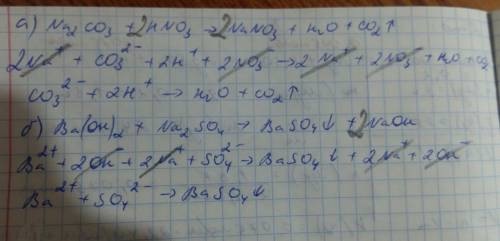 а) Na₂CO₃ + 2HNO₃ → 2NaNO₃ + H₂O + CO₂↑
2Na⁺ + CO₃²⁻ + 2H⁺ + 2NO₃⁻ → 2Na⁺ + 2NO₃⁻ + H₂O + CO₂
CO₃²⁻ + 2H⁺ → H₂O + CO₂↑
б) Ba(OH)₂ + Na₂SO₄ → BaSO₄↓ + 2NaOH
Ba²⁺ + 2OH⁻ + 2Na⁺ + SO₄²⁻ → BaSO₄↓ + 2Na⁺ + 2OH⁻
Ba²⁺ + SO₄²⁻ → BaSO₄↓